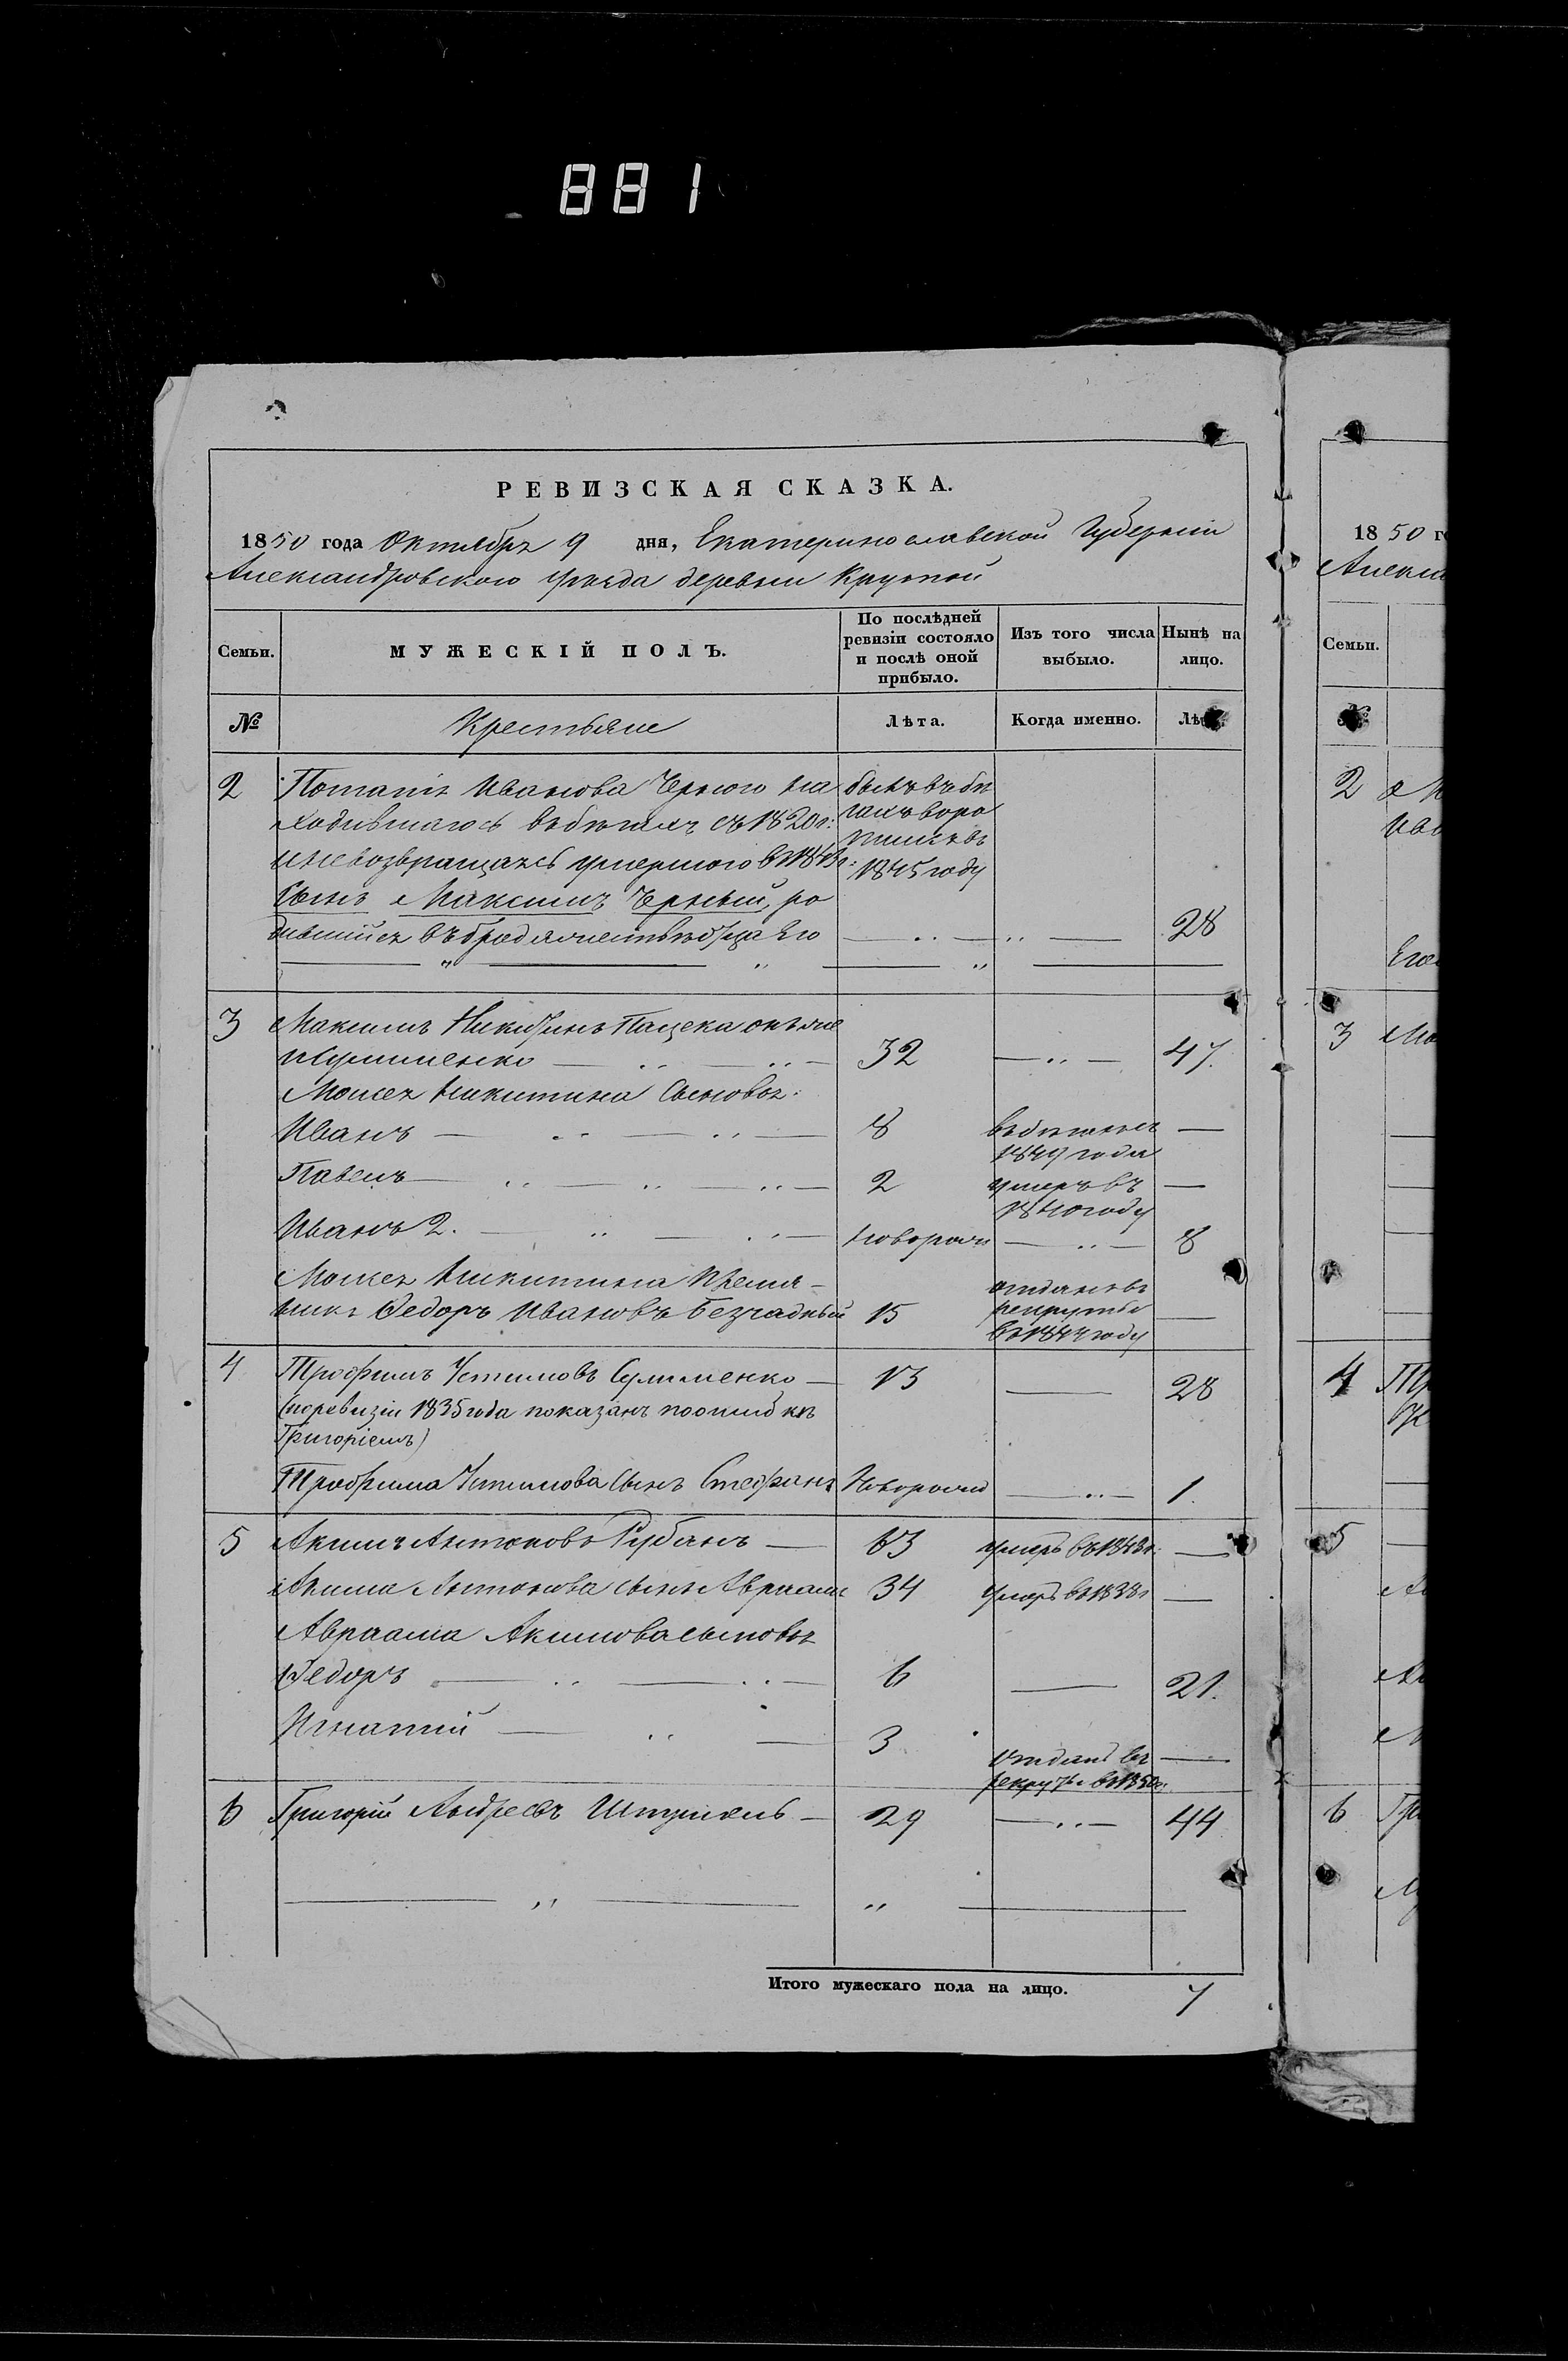 881
РЕВИЗСКАЯ СКАЗКА.
1850 года Октября 9 дня, Екатеринославской Губернии
Александровского уѣзда деревни Крутой
Семьи. МУЖЕСКІЙ ПОЛЪ. По послѣдней ревизіи состояло и послѣ оной прибыло. Изъ того числа выбыло. Нынѣ на лицо.
№ Крестьяне Лѣта. Когда именно. Лѣ
2 Потапія Иванова Чернаго на былъ въ бѣ
ходившагося въ бѣгахъ съ 1820 г: гахъ воро
и невозвращаясь умершого в 1843 г: тился въ
Сынъ Максимъ Черный, ро 1845 году
дившийся въ бродяжествѣ отца Его 28
3 Максимъ Никитинъ Пацека онъ же
Сулименко 32 47.
Мойсея Никитина Сыновья:
Иванъ 8 въ бѣгахъ съ
1849 года
Павелъ 2 умеръ въ
1840 году
Иванъ 2. новорожд 8
Мойсея Никитина Племя-
никъ Федоръ Ивановъ Безчадный 15 отданъ въ рекруты в 1844 году
4 Трофимъ Устимовъ Сулименко 13 28
(по ревизіи 1835 года показанъ по ошибкѣ
Григоріемъ)
Трофима Устимова Сынъ Стефанъ Новорожд 1.
5 Акимъ Антоновъ Рубанъ 63 умеръ въ 1843 г.
Акима Антонова сынъ Авраамъ 34 умеръ въ 1838 г
Авраама Акимова сыновья
Федоръ 6 21.
Игнатий 3 отданъ въ
рекруты въ 1850 г.
6 Григорій Андреевъ 29 44
Итого мужескаго пола на лицо. 7
1850 г
Алекса
Семьи.
№
2
Ива
Его
3 Мо
4 Тр
5
6 Гри